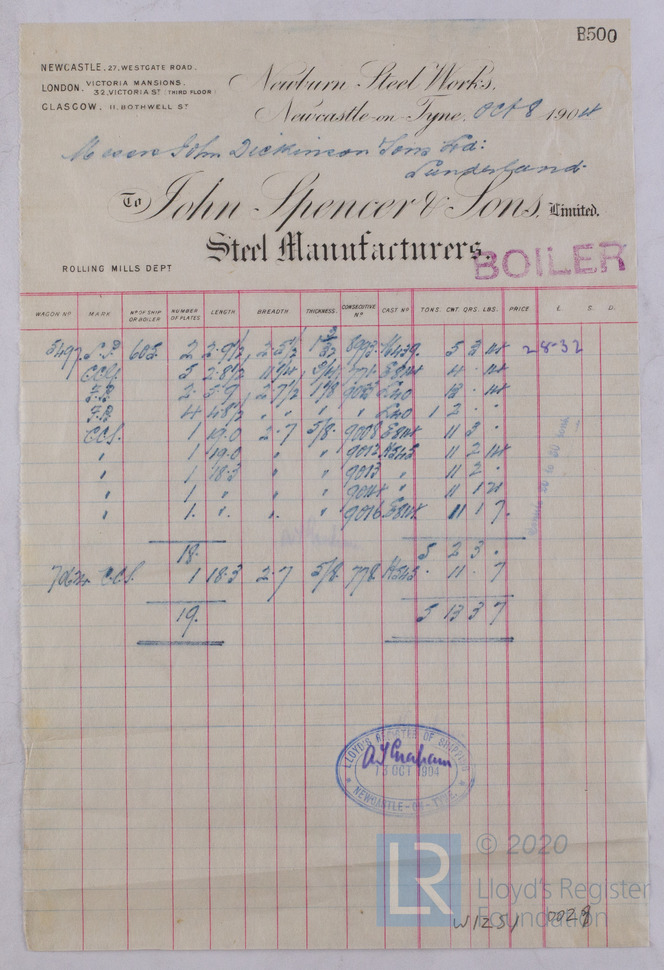 B500
NEWCASTLE, 27, WESTGATE ROAD.
LONDON. VICTORIA MANSIONS. 32, VICTORIA ST (THIRD FLOOR)
GLASGOW, 11, BOTHWELL ST
Newburn Steel Works,
Newcastle-on-Tyne, Oct 8 1904
Messrs John Dickinson Sons Ld:
Sunderland
To John Spencer & Sons, Limited.
Steel Manufacturers.
BOILER
ROLLING MILLS DEPT
WAGON No MARK No OF SHIP OR BOILER NUMBER OF PLATES LENGTH BREADTH THICKNESS. CONSECUTIVE No CAST No TONS. CWT. QRS. LBS. PRICE £ S. D.
5497 605 2 2.9½ 2.5½ 8993 5 3 14 28-32
CCS. 5 2.8½ E814 4 . 14
F.B 2 2.7½ 1⅛ L40 14
F.B 4 " " " L40 1 2 . .
CCS. 1 19.0 2.7 5/8 9008 E814 11 3 .
" 1 19.0 " " 9012 H545 11 2 14
" 1 18.3 " " 9013 " 11 2 .
" 1 " " " 9014 " 11 1 21
" 1 " " " 9016 E814 11 1 7.
18. 5 2 3 .
CCS. 1 18.3 2.7 5/8 778 H545 . 11 . 7
19. 5 13 3 7
LLOYD'S REGISTER OF SHIPPING
A J Graham
13 OCT 1904
NEWCASTLE-ON-TYNE
LR
© 2020
Lloyd's Register
Foundation
W1251 0029